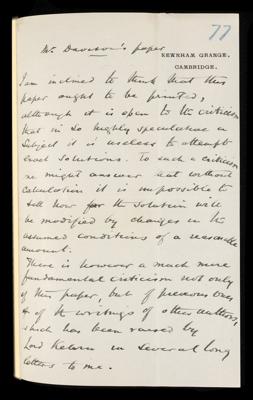 77
Mr Davison's paper
NEWNHAM GRANGE,
CAMBRIDGE.
I am inclined to think that this
paper ought to be printed,
although it is open to the criticism
that in so highly speculative a
subject it is useless to attempt
exact solutions. To such a criticism
we might answer that without
calculation it is impossible to
tell how far the solution will
be modified by changes in the
assumed conditions of a reasonable
amount.
There is however a much more
fundamental criticism not only
of this paper, but of previous ones
& of the writings of other authors,
which has been raised by
Lord Kelvin in several long
letters to me.